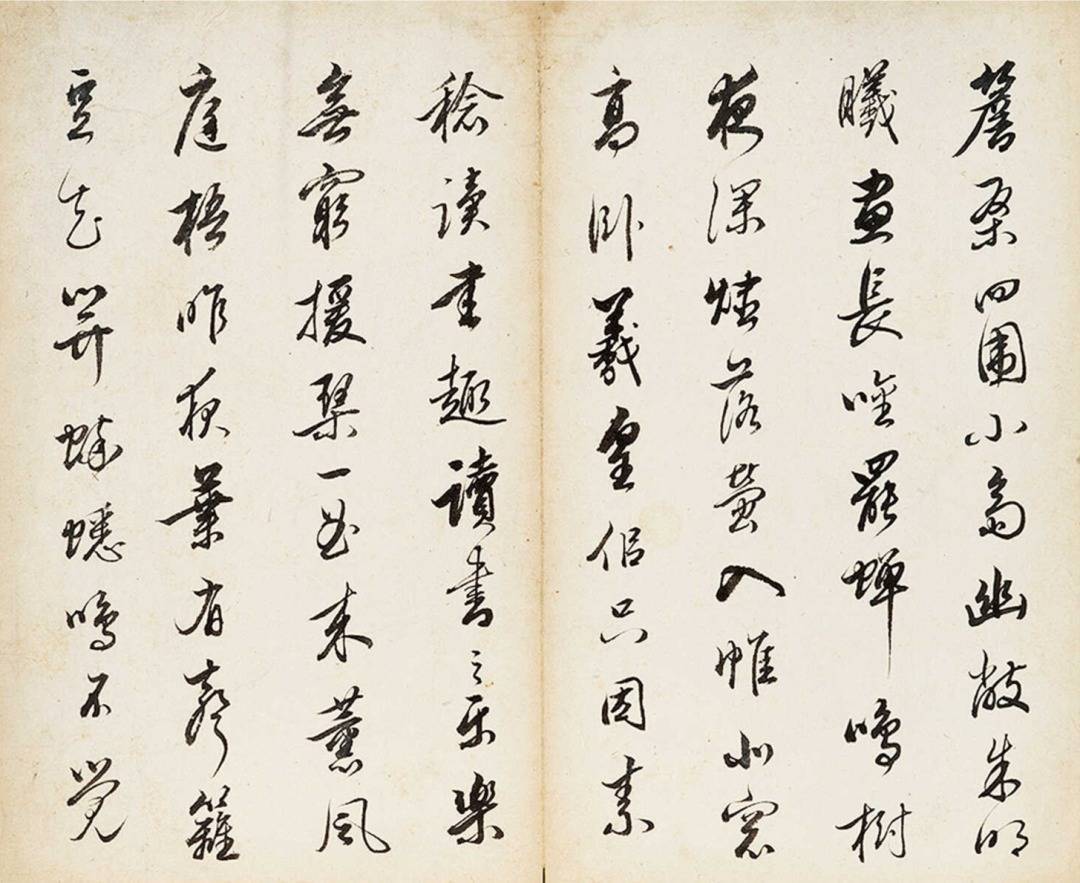 簷桑四圍小齋幽敞朱明
曦晝長吟罷蟬鳴樹
夜深燼落螢入帷北窗
高卧羲皇侣只因素
稔讀書趣讀書之樂樂
無窮援琴一曲来薰風
庭梧昨夜葉有聲籬
豆花開蟋蟀鳴不覺